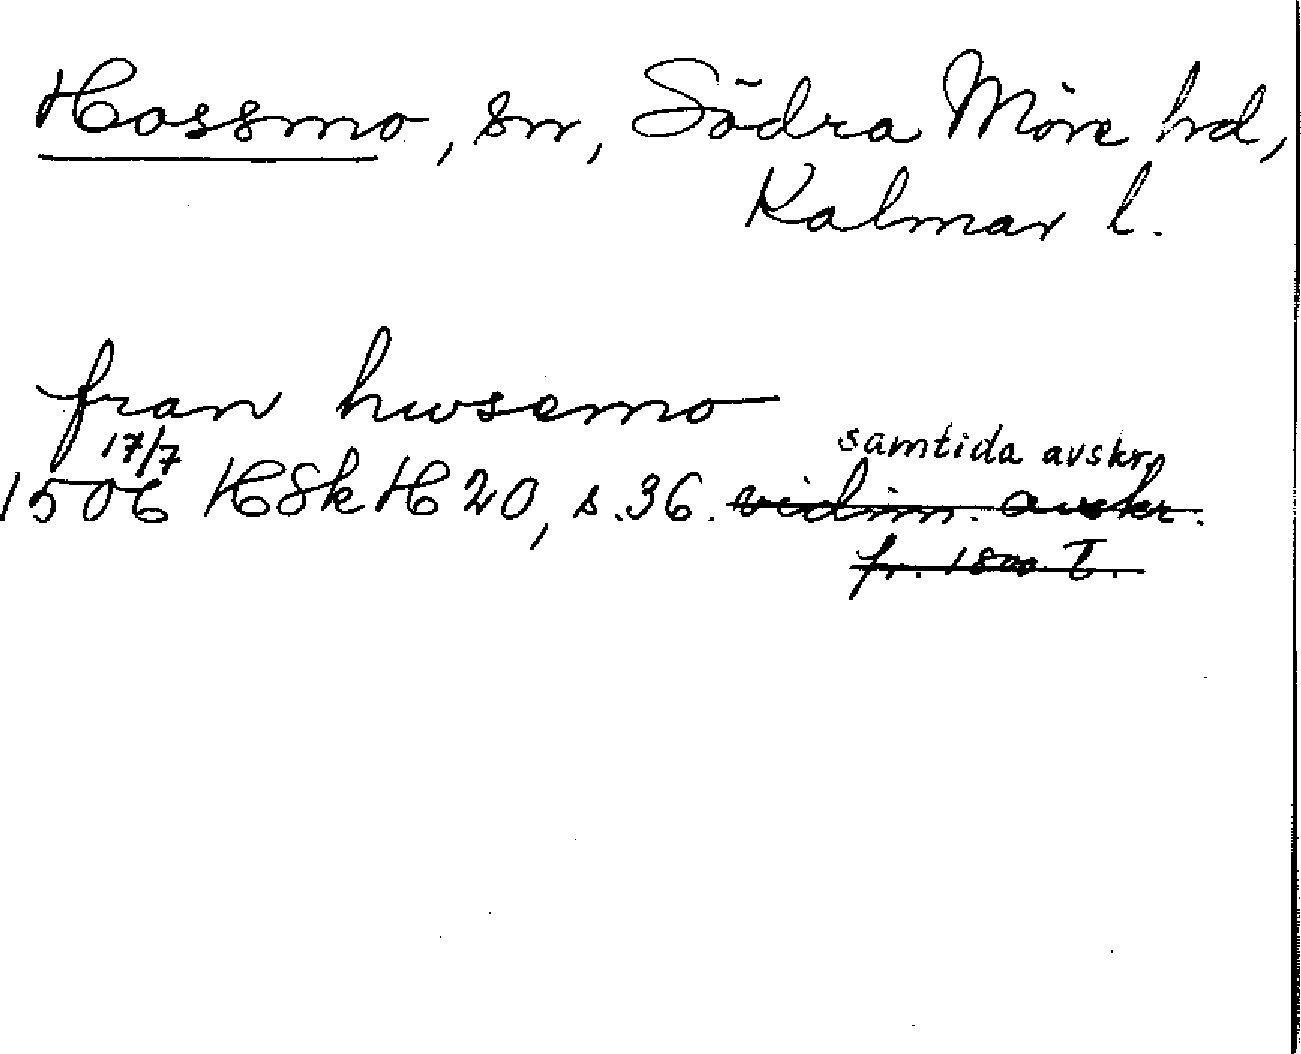 Hossmo, sn, Södra Möre hd,
Kalmar l.
fran hwsemo
17/7
samtida avskr.
1506 HSk H 20, s. 36. vidim. avskr.
fr. 1800 t.